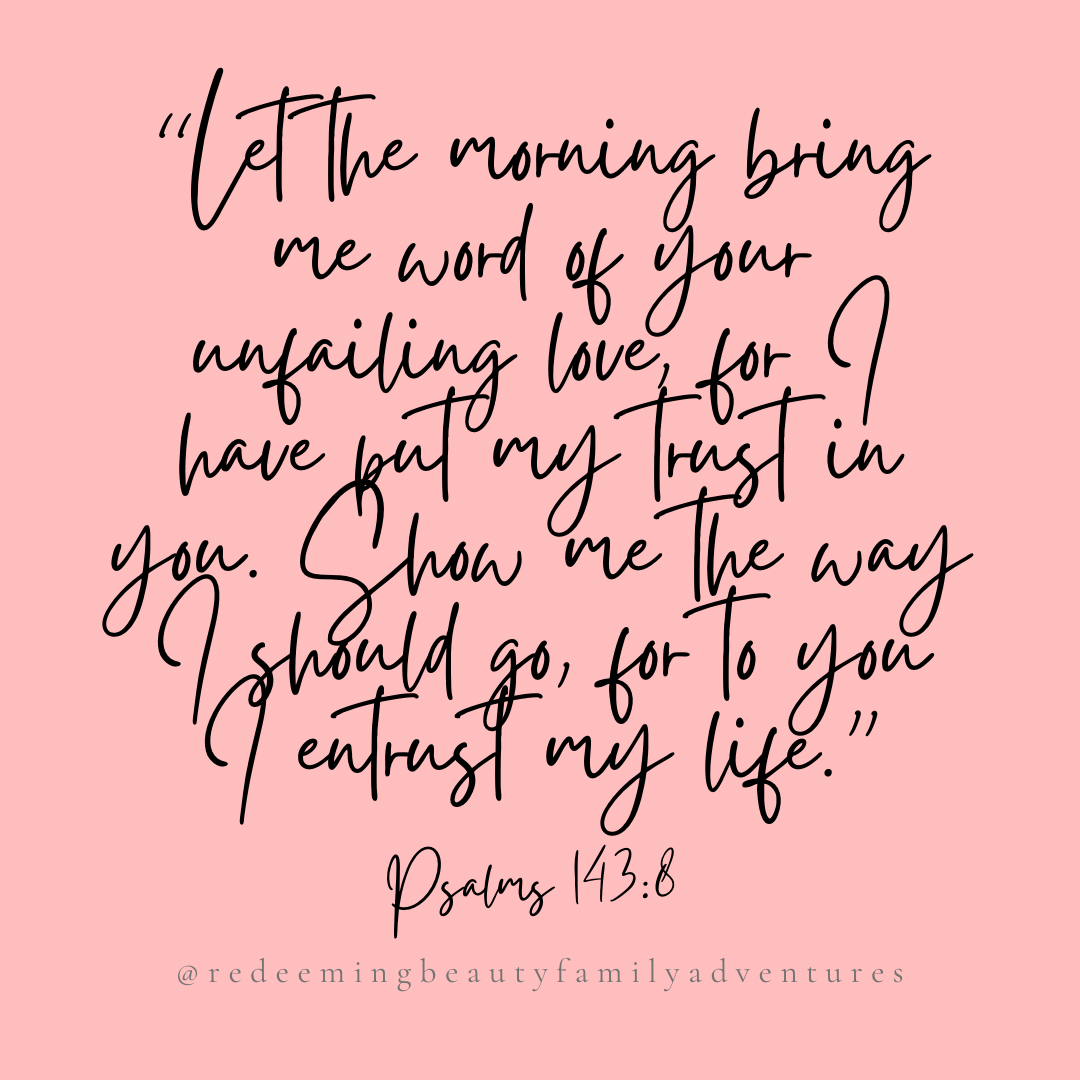 “Let the morning bring
me word of your
unfailing love, for I
have put my trust in
you. Show me the way
I should go, for to you
I entrust my life.”
Psalms 143:8
@redeemingbeautyfamilyadventures